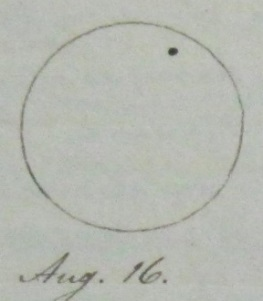 Aug. 16.